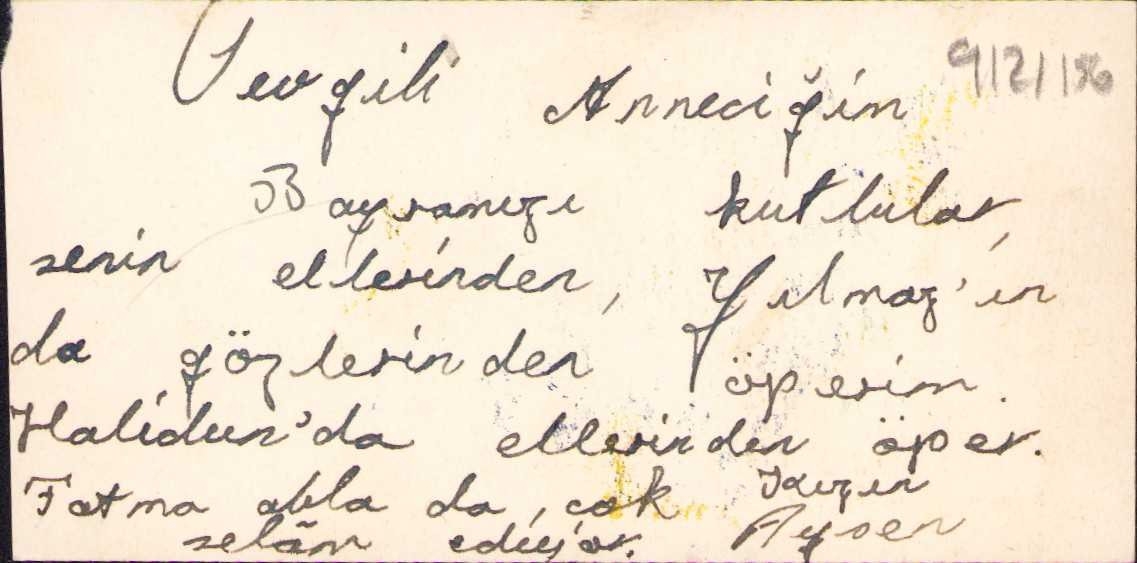 Sevgili Anneciğim 9/2/156
Bayramızı kutlular,
senin ellerinden, Yılmaz'ın
da gözlerinden öperim.
Halidun'da ellerinden öper.
Fatma abla da, cok Kızın
selâm ediyor. Aysen